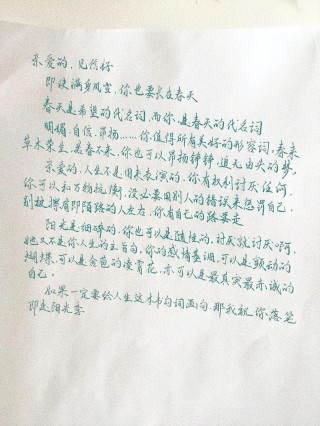 亲爱的，见信好
即使满身风雪，你也要长在春天
春天是希望的代名词，而你，是春天的代名词
明媚、自信、昂扬……你值得所有美好的形容词，春来
草木荣生，若春不来，你也可以昂扬铮铮，追无由头的梦。
亲爱的，人生不是用来表演的，你有权利讨厌任何，
你可以和万物抗衡，没必要因别人的错误来惩罚自己，
别被擦肩即陌路的人左右，你有自己的路要走
阳光是细碎的，你也可以是随性的，讨厌就讨厌啊，
她又不是你人生的主旨句，你的感情基调，可以是颤动的
蝴蝶，可以是含苞的凌霄花，亦可以是最真实最赤诚的
自己。
如果一定要给人生这本书句词画句，那我祝你，落笔
即是阳光季